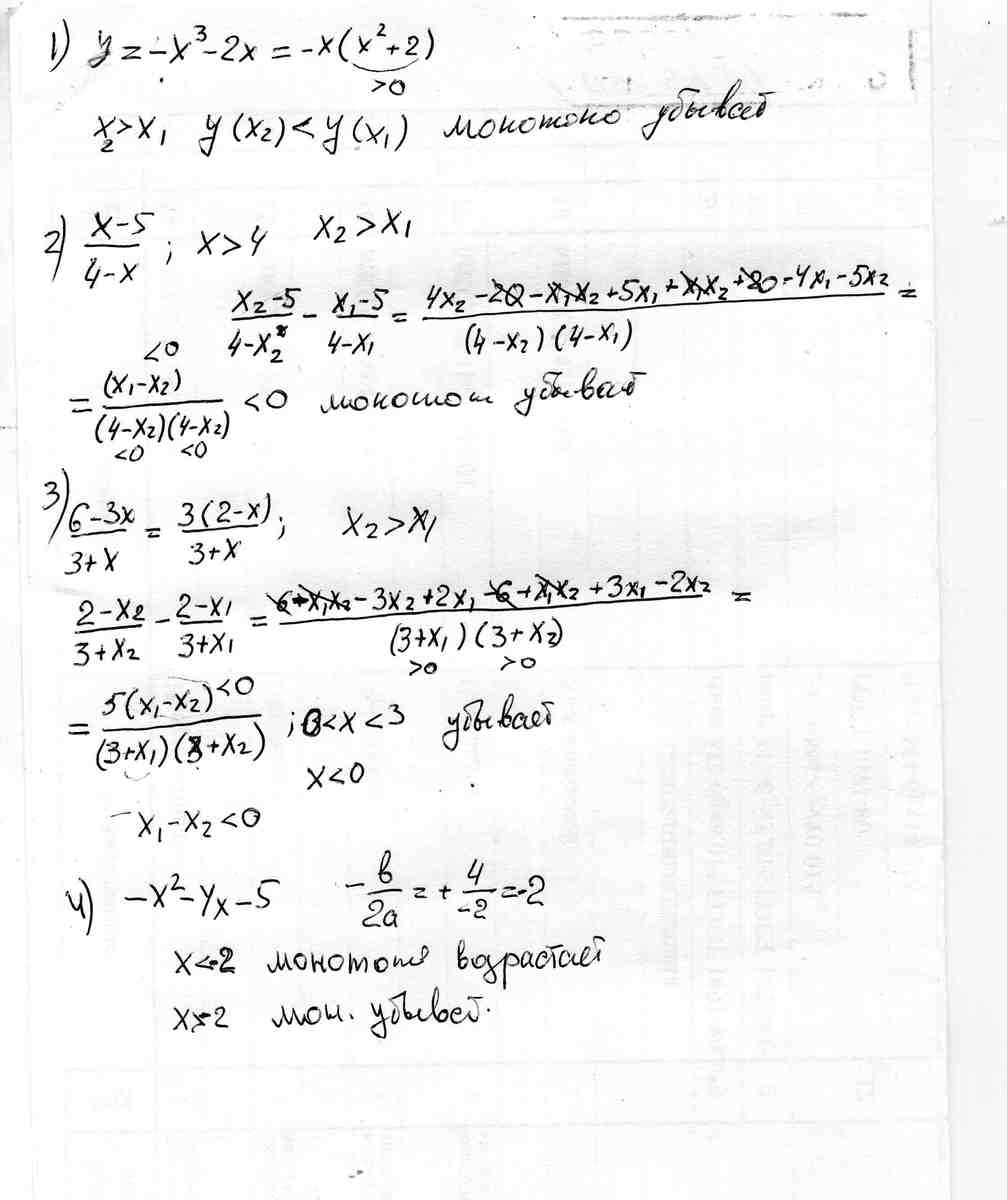 1) y = -x³ - 2x = -x(x² + 2)
>0
x₂ > x₁ y(x₂) < y(x₁) монотоно убывает
2) (x-5)/(4-x) ; x > 4 x₂ > x₁
(x₂-5)/(4-x₂) - (x₁-5)/(4-x₁) = (4x₂ - 20 - x₁x₂ + 5x₁ + x₁x₂ + 20 - 4x₁ - 5x₂)/((4-x₂)(4-x₁)) =
<0
= (x₁-x₂)/((4-x₂)(4-x₂)) < 0 монотон убывает
<0 <0
3) (6-3x)/(3+x) = 3(2-x)/(3+x) ; x₂ > x₁
(2-x₂)/(3+x₂) - (2-x₁)/(3+x₁) = (6 + x₁x₂ - 3x₂ + 2x₁ - 6 + x₁x₂ + 3x₁ - 2x₂)/((3+x₁)(3+x₂)) =
>0 >0
= 5(x₁-x₂)<0/((3+x₁)(3+x₂)) ; 0 < x < 3 убывает
x < 0
x₁ - x₂ < 0
4) -x² - 4x - 5 -в/2a = + 4/-2 = -2
x < -2 монотоне возрастает
x > -2 мон. убывает.